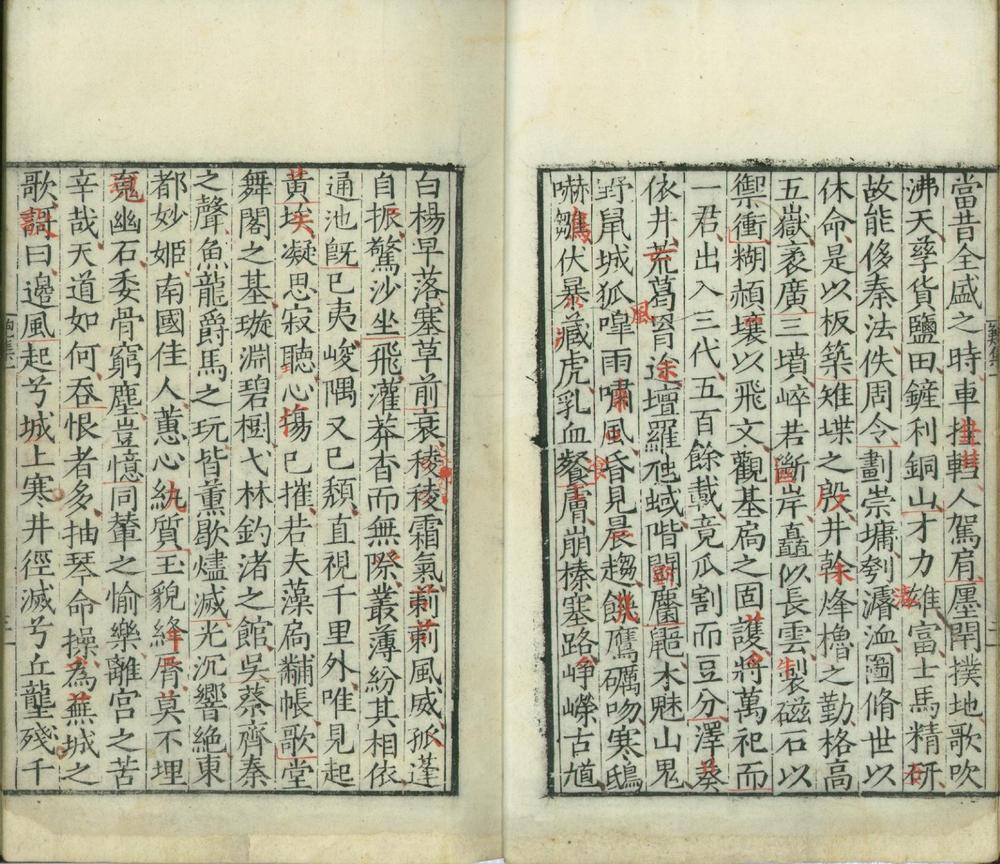 當昔全盛之時車挂轊人駕肩㕓閈撲地歌吹
沸天孳貨鹽田鏟利銅山才力雄富士馬精研
故能侈秦法佚周令劃崇墉刳濬洫圖脩世以
休命是以板築雉堞之殷井幹烽櫓之勤格高
五嶽袤廣三墳崪若斷岸矗似長雲製磁石以
禦衝糊赬壤以飛文觀基扃之固護將萬祀而
一君出入三代五百餘載竟瓜割而豆分澤葵
依井荒葛罥途壇羅虺蜮階鬬麏鼯木魅山鬼
野鼠城狐嘷雨嘯風昏見晨趨飢鷹礪吻寒鴟
嚇雛伏暴藏虎乳血飡膚崩榛塞路崢嶸古馗
白楊早落塞草前衰稜稜霜氣蔌蔌風威孤蓬
自振驚沙坐飛灌莽杳而無際叢薄紛其相依
通池旣已夷峻隅又已頹直視千里外唯見起
黃埃凝思寂聽心傷已摧若夫藻扃黼帳歌堂
舞閣之基璇淵碧樹弋林釣渚之館吳蔡齊秦
之聲魚龍爵馬之玩皆薰歇燼滅光沉響絶東
都妙姬南國佳人蕙心紈質玉貌絳脣莫不埋
䰟幽石委骨窮塵豈憶同輦之愉樂離宮之苦
辛哉天道如何吞恨者多抽琴命操爲蕪城之
歌歌曰邊風起兮城上寒井徑滅兮丘壟殘千